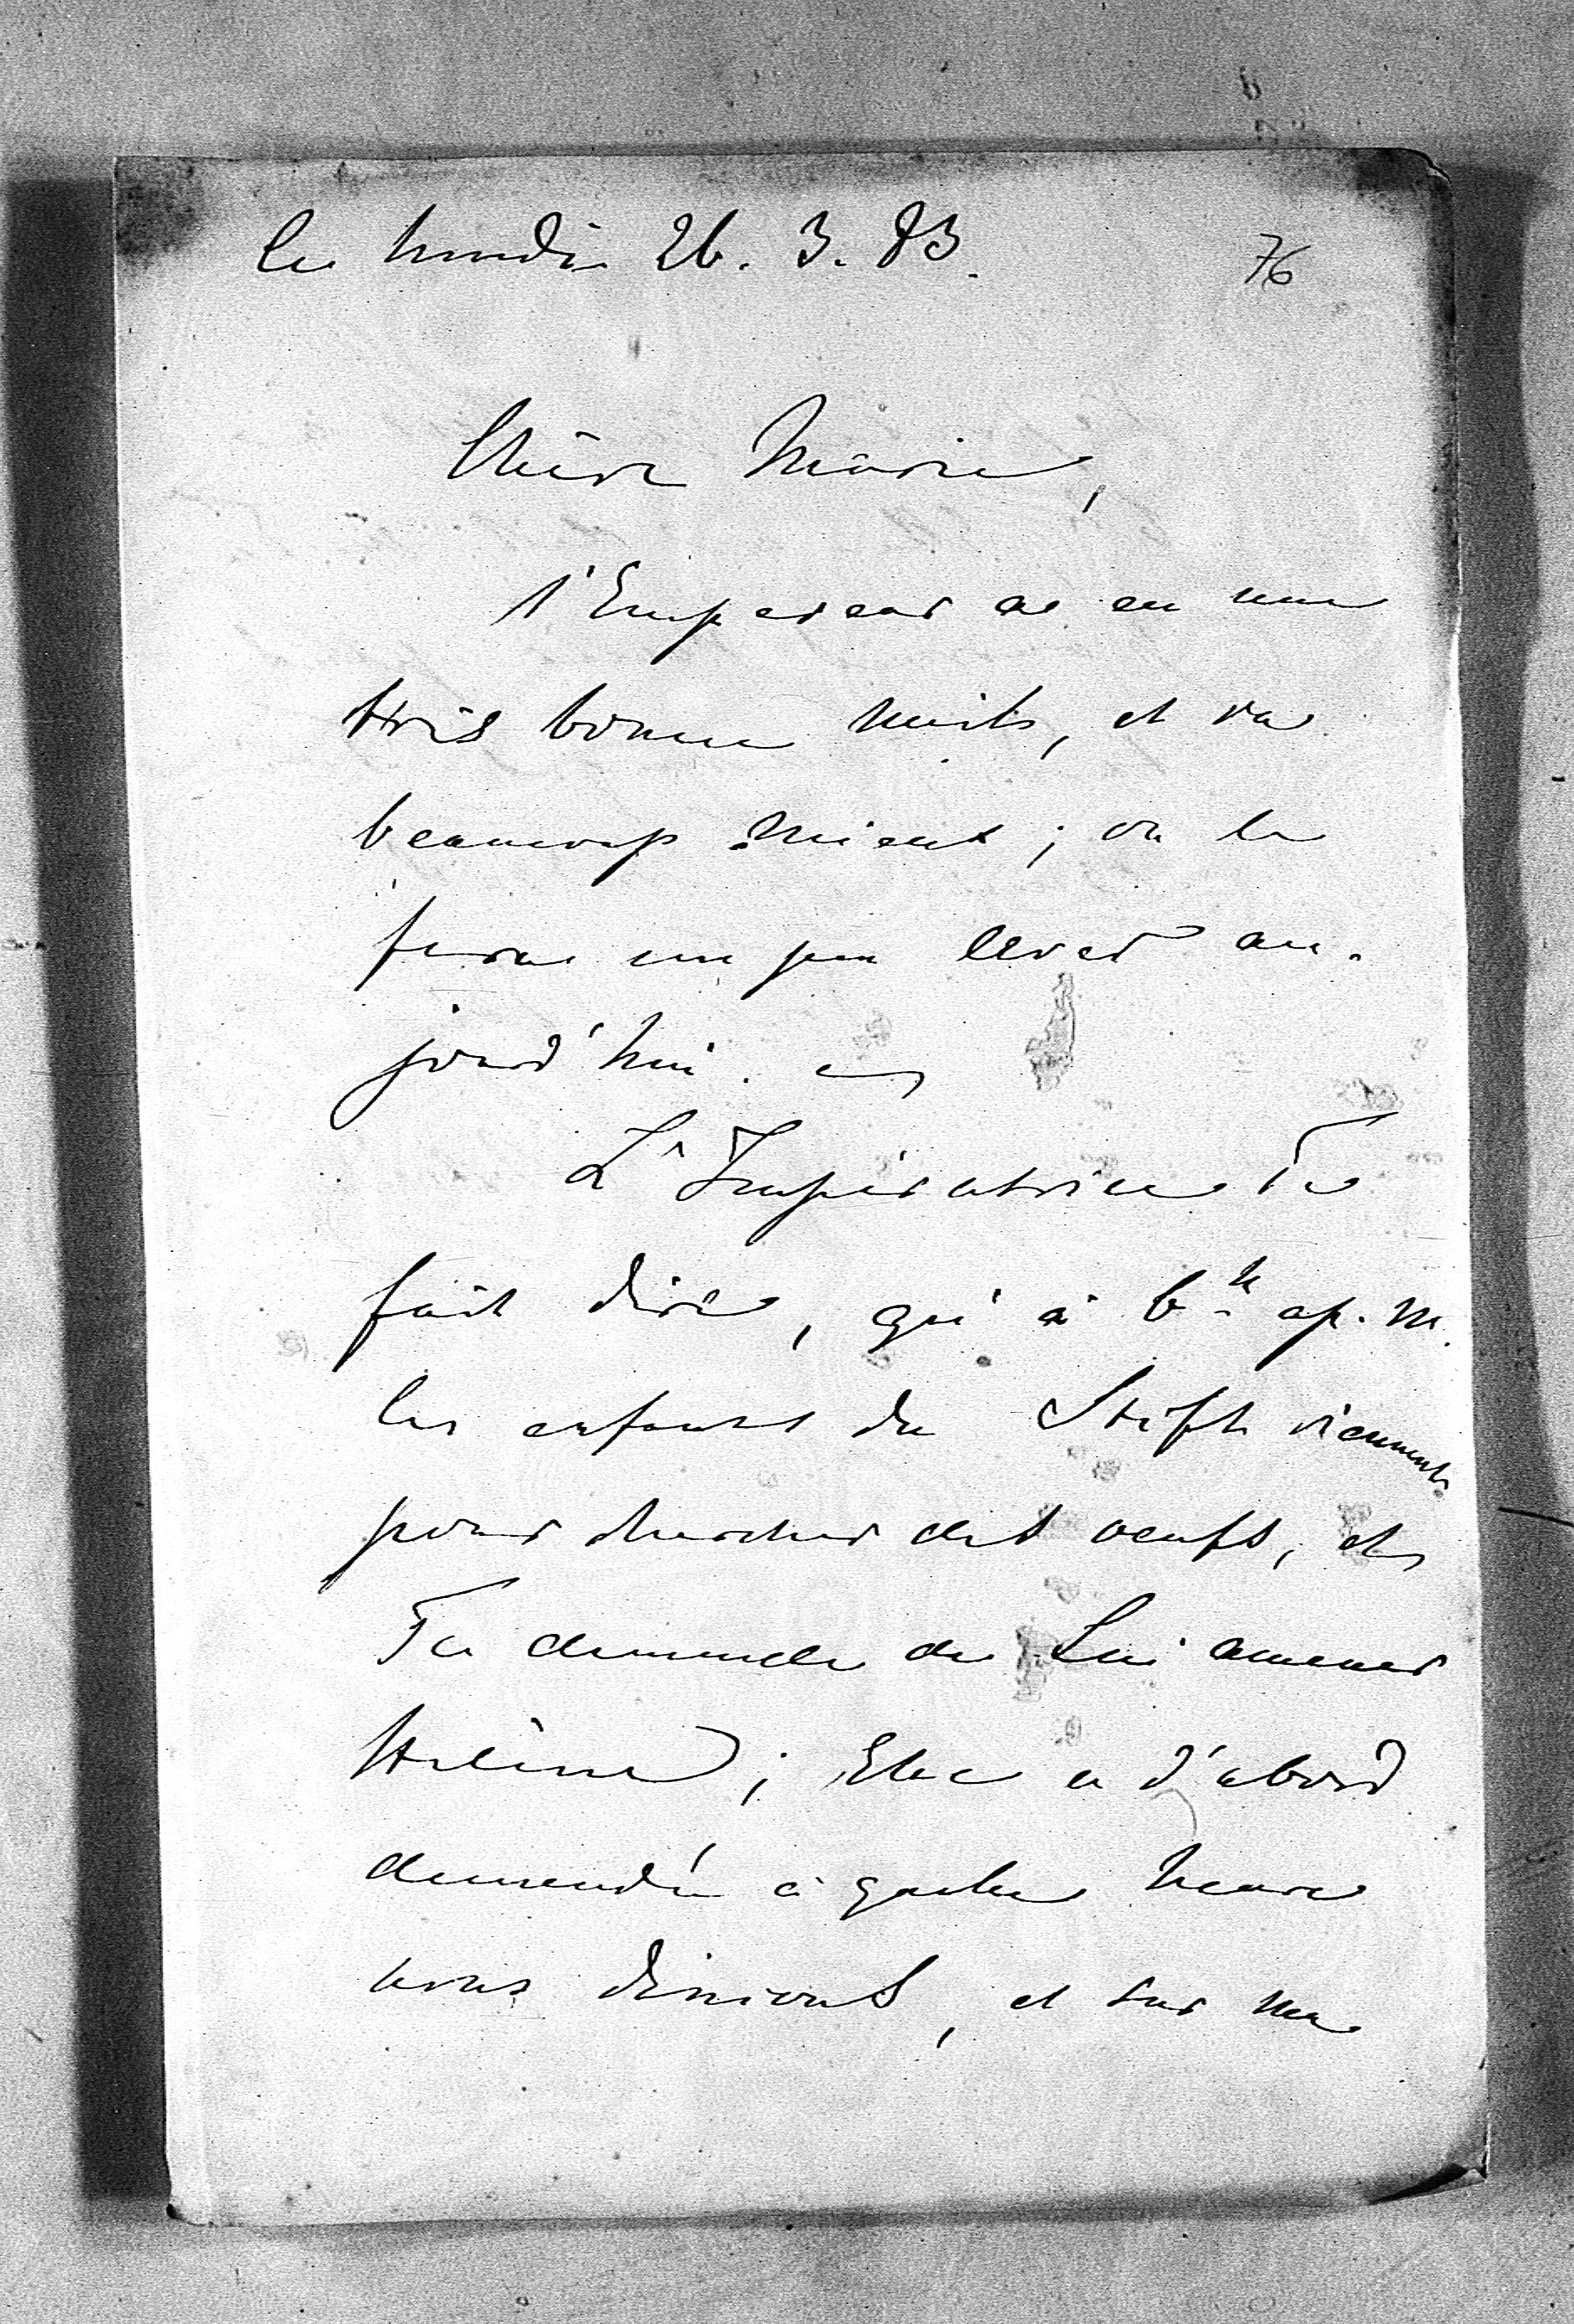 le lundi 26. 3. 83.
76
Chère Marie,
l'Empereur a eu une
très bonne nuit, et va
beaucoup mieux; on le
fera un peu lever au-
jourd'hui.
L'Impératrice Te
fait dire, qu'à 6h ap. m.
les enfants du Stift viennent
pour chercher des oeufs, et
Te demande de Lui amener
Hélène; Elle a d'abord
demandé à quelle heure
nous dinions, et sur ma